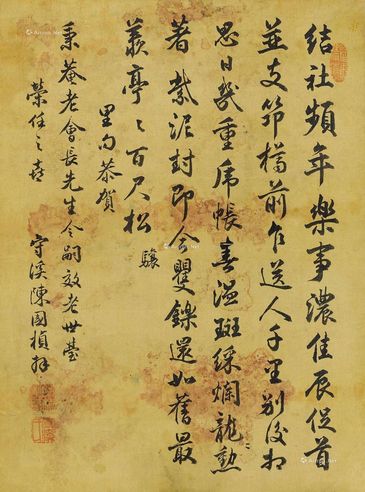 結社頻年樂事濃佳辰促首
並支笻橋前乍送人千里別後相
思日幾重虎帳春溫斑綵爛龍勳
著紫泥封即今矍鑠還如舊最
羨亭亭百尺松 驤
里句恭賀
秉菴老會長先生令嗣效老世臺
榮任之喜
守溪陳國楨拜